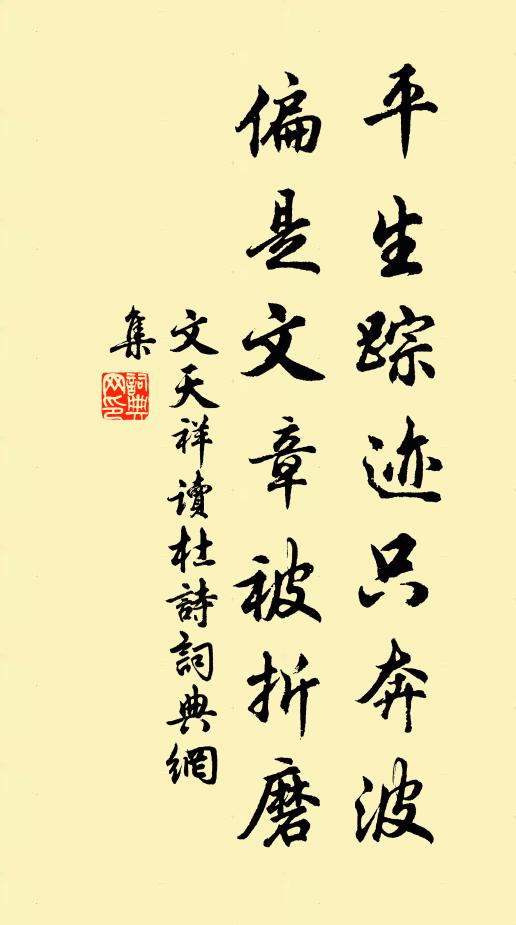 平生踪迹只奔波
偏是文章被折磨
文天祥讀杜詩詞典網
集
詞典
网印